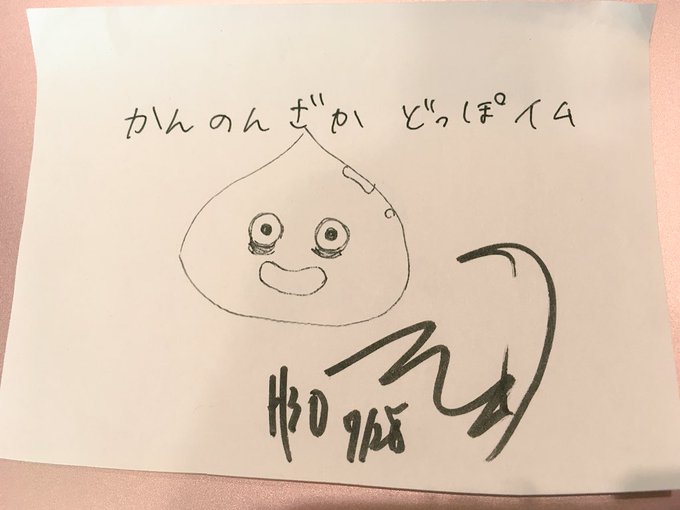 かんのんざか どっぽイム
H30 9/28